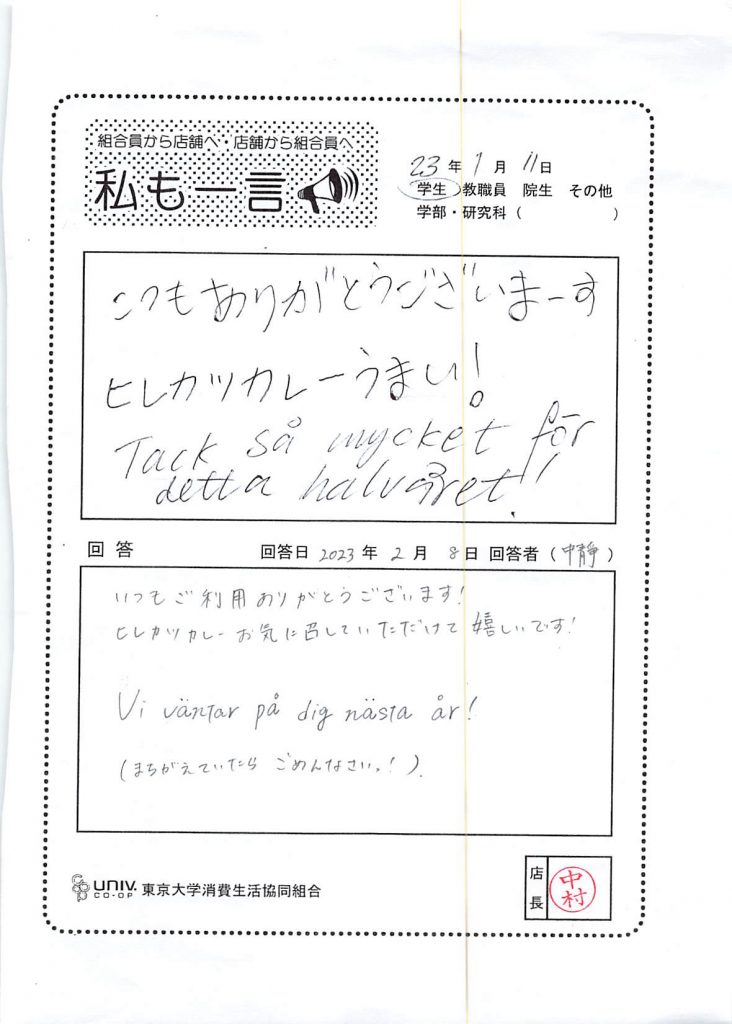 組合員から店舗へ・店舗から組合員へ
私も一言
23年1月11日
学生 教職員 院生 その他
学部・研究科（ ）
いつもありがとうございまーす
ヒレカツカレーうまい!
Tack så mycket för
detta halvåret!
回答 回答日 2023年2月8日 回答者（中静）
いつもご利用ありがとうございます!
ヒレカツカレーお気に召していただけて嬉しいです!
Vi väntar på dig nästa år!
(まちがえていたら ごめんなさいっ!).
UNIV. CO-OP 東京大学消費生活協同組合
店長
中村